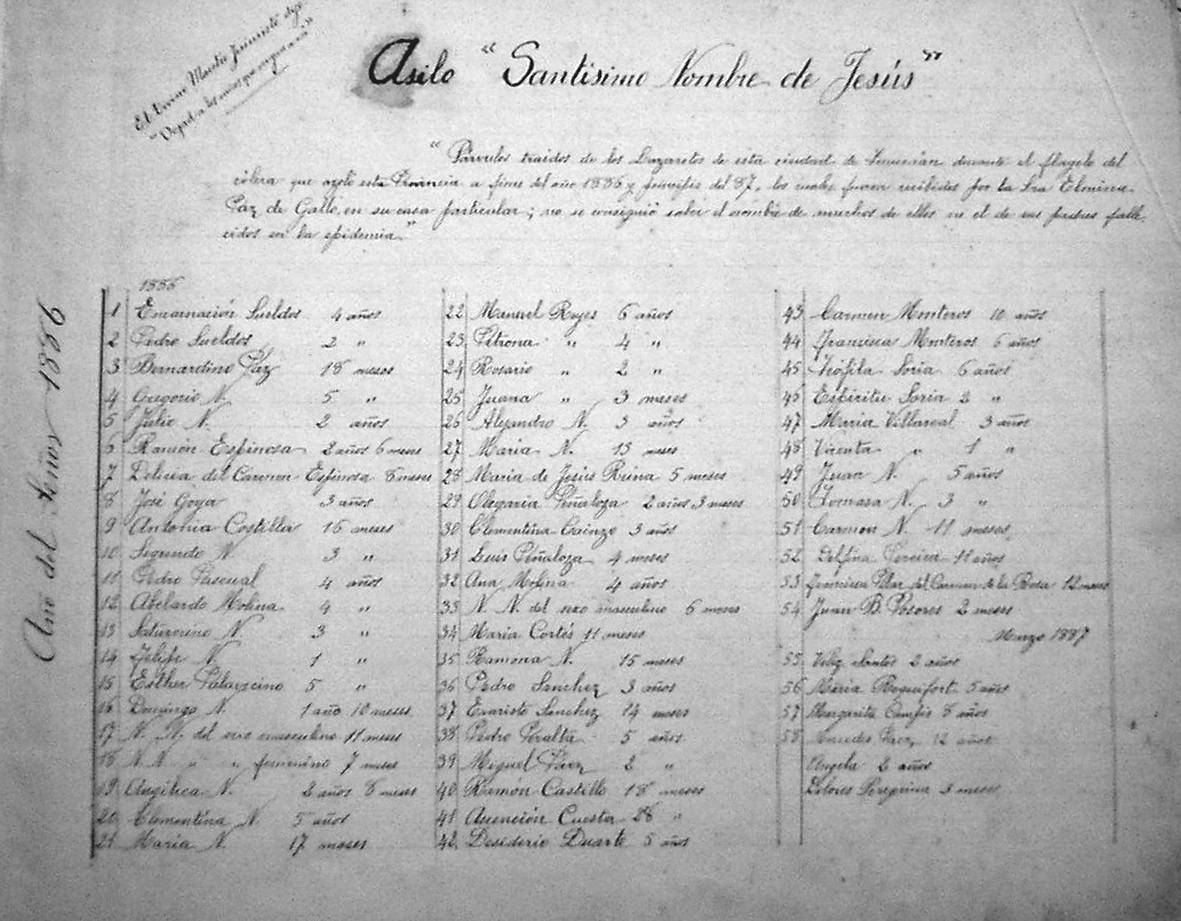 El Divino Maestro Jesucristo dijo
"Dejad a los niños que vengan a mí"
Asilo "Santísimo Nombre de Jesús"
"Párvulos traidos de los Lazaretos de esta ciudad de Tucumán durante el flagelo del
cólera que azotó esta Provincia a fines del año 1886 y principios del 87, los cuales fueron recibidos por la Sra Elmina
Paz de Gallo, en su casa particular; no se consiguió saber el nombre de muchos de ellos ni el de sus padres falle-
cidos en la epidemia."
Año del Señor 1886
1886
1 Encarnación Sueldos 4 años
2 Pedro Sueldos 2 "
3 Bernardino Paz 18 meses
4 Gregorio N. 5 "
5 Julio N. 2 años
6 Ramón Espinosa 2 años 6 meses
7 Delicia del Carmen Espinosa 8 meses
8 José Goya 3 años
9 Antonia Costilla 16 meses
10 Segundo N. 3 "
11 Pedro Pascual 4 años
12 Abelardo Molina 4 "
13 Saturnino N. 3 "
14 Felipe N. 1 "
15 Esther Palavecino 5 "
16 Domingo N. 1 año 10 meses
17 N. N. del sexo masculino 11 meses
18 N. N. " " femenino 7 meses
19 Angélica N. 2 años 8 meses
20 Clementina N. 5 años
21 Maria N. 17 meses
22 Manuel Reyes 6 años
23 Petrona " 4 "
24 Rosario " 2 "
25 Juana " 3 meses
26 Alejandro N. 3 años
27 Maria N. 13 meses
28 Maria de Jesús Reina 5 meses
29 Olegaria Peñaloza 2 años 3 meses
30 Clementina Cainzo 3 años
31 Luis Peñaloza 4 meses
32 Ana Molina 4 años
33 N. N. del sexo masculino 6 meses
34 Maria Cortés 11 meses
35 Ramona N. 15 meses
36 Pedro Sanchez 3 años
37 Evaristo Sanchez 14 meses
38 Pedro Peralta 5 años
39 Miguel Páez 2 "
40 Ramón Castillo 18 meses
41 Asunción Cuesta 26 "
42 Desiderio Duarte 5 años
43 Carmen Monteros 10 años
44 Francisca Monteros 6 años
45 Teófila Soria 6 años
46 Espíritu Soria 2 "
47 Maria Villareal 3 años
48 Vicenta " 1 "
49 Juan N. 5 años
50 Tomasa N. 3 "
51 Carmen N. 11 meses
52 Delfina Pereira 11 años
53 Francisca Pilar del Carmen de la Rosa 12 meses
54 Juan B. Posores 2 meses
Marzo 1887
55 Velez Santos 2 años
56 Maria Roquefort 5 años
57 Margarita Campos 8 años
58 Mercedes Paez 12 años
Angela 2 años
Dolores Peregrina 3 meses